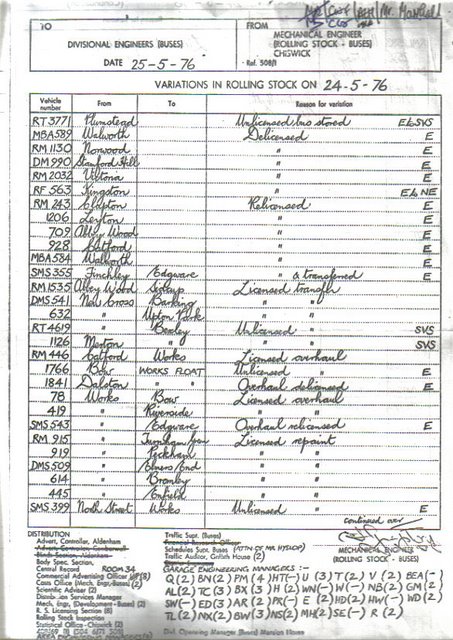 TO
FROM
MECHANICAL ENGINEER
(ROLLING STOCK - BUSES)
CHISWICK
DIVISIONAL ENGINEERS (BUSES)
DATE 25-5-76
Ref. 508/1
VARIATIONS IN ROLLING STOCK ON 24-5-76
Vehicle number From To Reason for variation
RT 3771 Plumstead Unlicensed bus stored E6 SVS
MBA 589 Walworth Delicensed E
RM 1130 Norwood " E
DM 990 Stamford Hill " E
RM 2032 Victoria " E
RF 563 Kingston " E6 NE
RM 243 Clapton Relicensed E
1206 Leyton " E
709 Abbey Wood " E
928 Catford " E
MBA 584 Walworth " E
SMS 355 Finchley Edgware " & transferred E
RM 1535 Abbey Wood Sidcup Licensed transfer
DMS 541 New Cross Barking " "
632 " Upton Park " "
RT 4619 " Bexley Unlicensed " SVS
1126 Merton " " " SVS
RM 446 Catford Works Licensed overhaul
1766 Bow WORKS FLOAT Unlicensed " E
1841 Dalston " " Overhaul delicensed E
78 Works Bow Licensed overhaul
419 " Riverside " "
SMS 543 " Edgware Overhaul relicensed E
RM 915 " Turnham Grn Licensed repaint
919 " Peckham " "
DMS 509 " Elmers End " "
614 " Bromley " "
445 " Enfield " "
SMS 399 North Street Works Unlicensed " E
continued over
MECHANICAL ENGINEER
(ROLLING STOCK - BUSES)
DISTRIBUTION
Advert, Controller, Aldenham
Body Spec, Section,
Central Record ROOM 34
Commercial Advertising Officer
Costs Office (Mech. Engr. Buses) (2)
Scientific Adviser (2)
Distribution Services Manager
Mech. Engr. (Development - Buses) (2)
R. S. Licensing Section (8)
Rolling Stock Inspection
Statistical Office - Chiswick (2)
Traffic Supt. (Buses)
Schedules Supt. Buses (ATTN OF MR HYSLOP)
Traffic Auditor, Griffith House (2)
GARAGE ENGINEERING MANAGERS :-
Q (2) BN (2) PM (4) HT(-) U (3) T (2) V (2) BEA (-)
AL (2) TC (3) BX (3) H (2) WN(-) W(-) NB(2) GM (2)
SW(-) ED(3) AR (2) PK(-) E (2) HD(2) HW(-) WD (2)
TL(2) NX(2) BW(3) NS(2) MH(2) SE(-) R (2)
Divl. Operating Manager (Buses) Mansion House